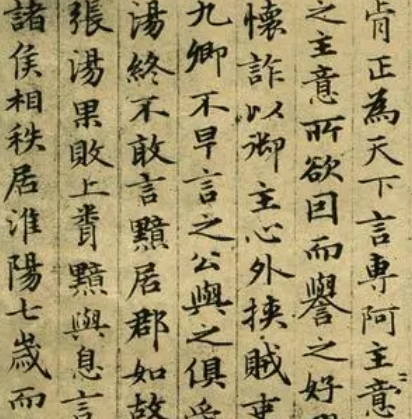 肯正為天下言専阿主意
之主意所欲因而譽之好
懷詐以御主心外挟賊吏
九卿不早言之公與之俱受
湯終不敢言黯居郡如故
張湯果敗上賁黯與息言
諸侯相秩居淮陽七歳而